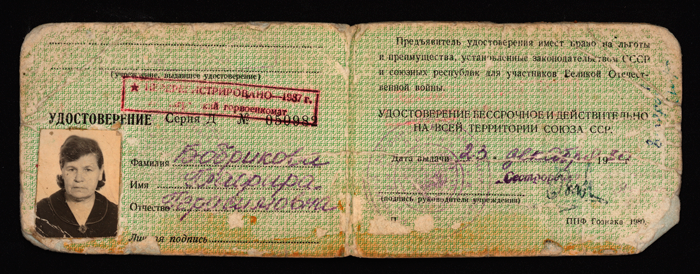 (учреждение, выдавшее удостоверение)
★ ПЕРЕРЕГИСТРИРОВАНО—1987 г.
горвоенкомат
УДОСТОВЕРЕНИЕ Серия Д №
Фамилия Бобрикова
Имя
Отчество
Личная подпись
Предъявитель удостоверения имеет право на льготы
и преимущества, установленные законодательством СССР
и союзных республик для участников Великой Отечест-
венной войны.
УДОСТОВЕРЕНИЕ БЕССРОЧНОЕ И ДЕЙСТВИТЕЛЬНО
НА ВСЕЙ ТЕРРИТОРИИ СОЮЗА ССР.
Дата выдачи 23
(подпись руководителя учреждения)
ППФ Гознака 1980